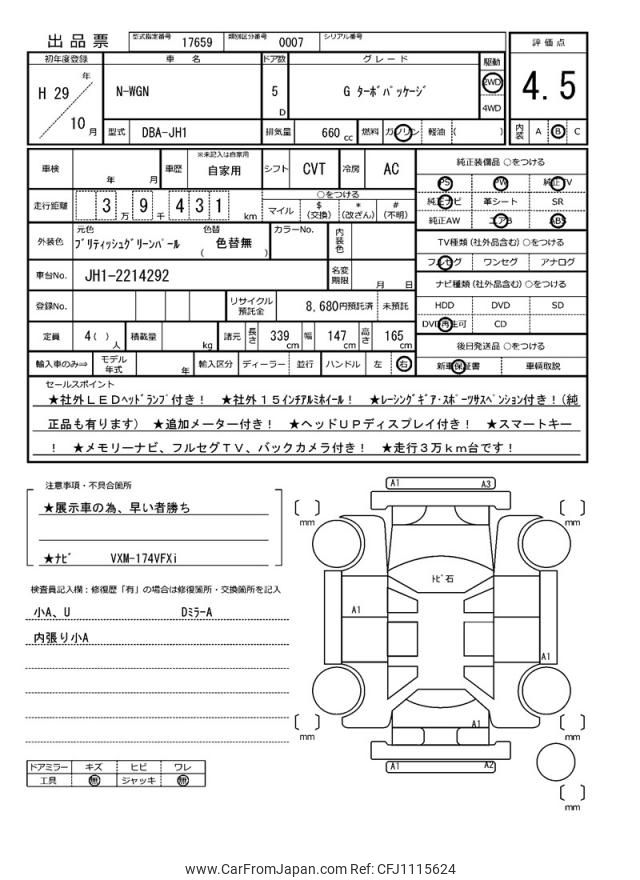 出品票
型式指定番号 17659 類別区分番号 0007 シリアル番号
初年度登録 車名 ドア数 グレード 駆動 評価点
H 29 年 10 月
N-WGN 5 D G ターボパッケージ 2WD 4WD
4.5
型式 DBA-JH1 排気量 660 cc 燃料 ガソリン 軽油 ( )
内装 A B C
車検 年 月 車歴 ※未記入は自家用 自家用 シフト CVT 冷房 AC
純正装備品 ○をつける
PS PW 純正TV
純正ナビ 革シート SR
純正AW エアB ABS
走行距離 3 万 9 千 4 3 1 km
○をつける
マイル $ (交換) * (改ざん) # (不明)
外装色 元色 ブリティッシュグリーンパール 色替 ( 色替無 ) カラーNo. 内装色
TV種類 (社外品含む) ○をつける
フルセグ ワンセグ アナログ
車台No. JH1-2214292 名変期限 月 日
ナビ種類 (社外品含む) ○をつける
HDD DVD SD
DVD再生可 CD
登録No. リサイクル預託金 8,680円預託済 未預託
定員 4( ) 人 積載量 kg 諸元 長さ 339 cm 幅 147 cm 高さ 165 cm
後日発送品 ○をつける
新車保証書 車輌取説
輸入車のみ⇒ モデル年式 年 輸入区分 ディーラー 並行 ハンドル 左 右
セールスポイント
★社外LEDヘッドランプ付き! ★社外15インチアルミホイール! ★レーシングギア・スポーツサスペンション付き!(純
正品も有ります) ★追加メーター付き! ★ヘッドUPディスプレイ付き! ★スマートキー
! ★メモリーナビ、フルセグTV、バックカメラ付き! ★走行3万km台です!
注意事項・不具合箇所
★展示車の為、早い者勝ち
★ナビ VXM-174VFXi
検査員記入欄:修復歴「有」の場合は修復箇所・交換箇所を記入
小A、U DミラーA
内張り小A
ドアミラー キズ ヒビ ワレ
工具 無 ジャッキ 無
A1 A3
mm mm
トビ石
A1
A1
A1
mm mm
A1 A2
mm
www.CarFromJapan.com Ref: CFJ1115624